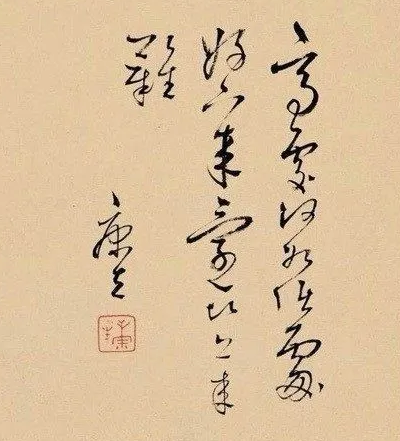 高處何如低處
好下來還比上來
難
康